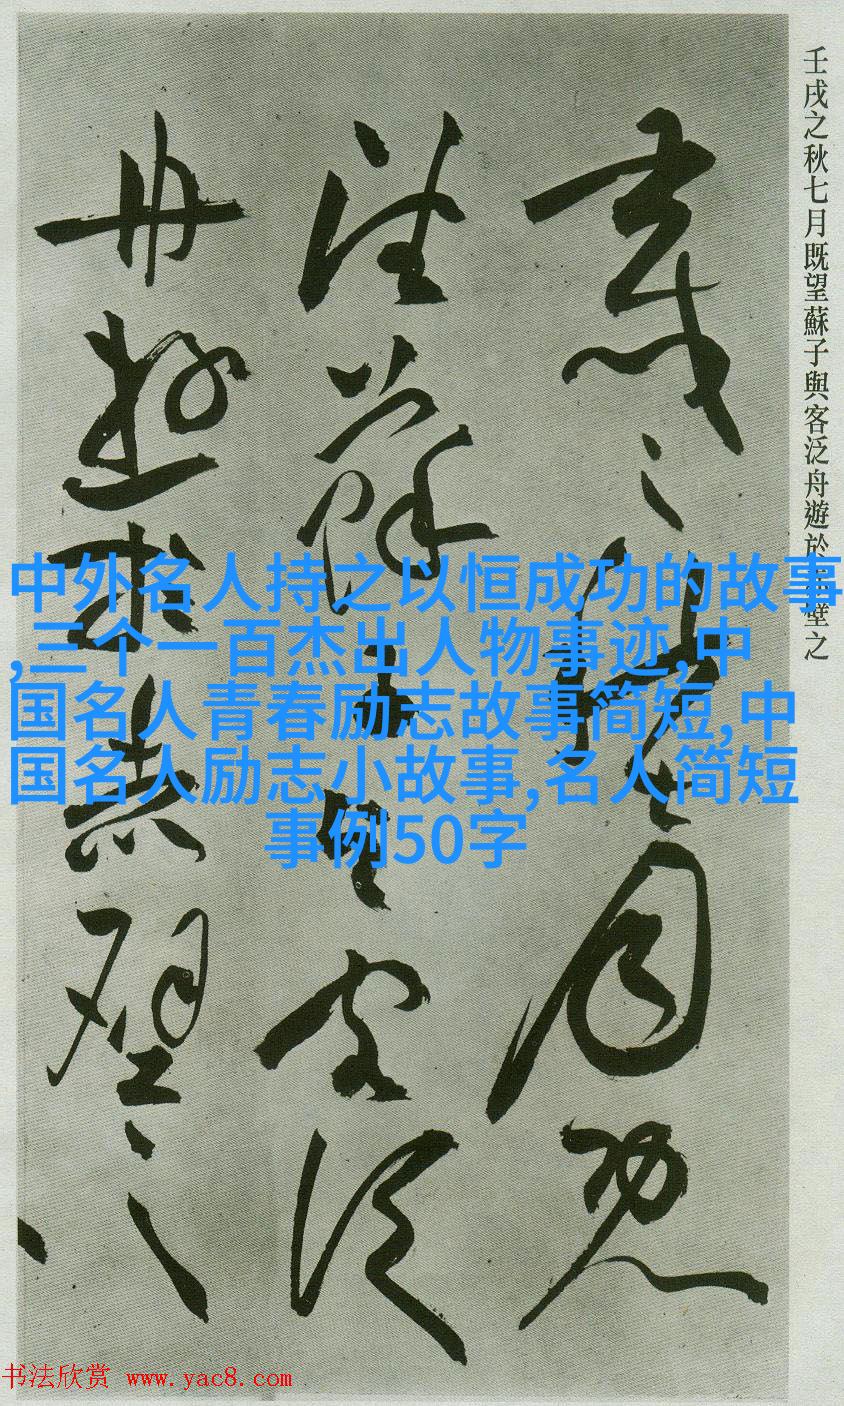 壬戌之秋七月既望蘇子與客泛舟遊於赤壁之
壬戌之秋七月既
望蘇子與客泛
舟遊於赤壁之
中外名人持之以恒成功的故事
,三个一百杰出人物事迹,中
国名人青春励志故事简短,中
国名人励志小故事,名人简短
事例50字
书法欣赏 www.yac8.com